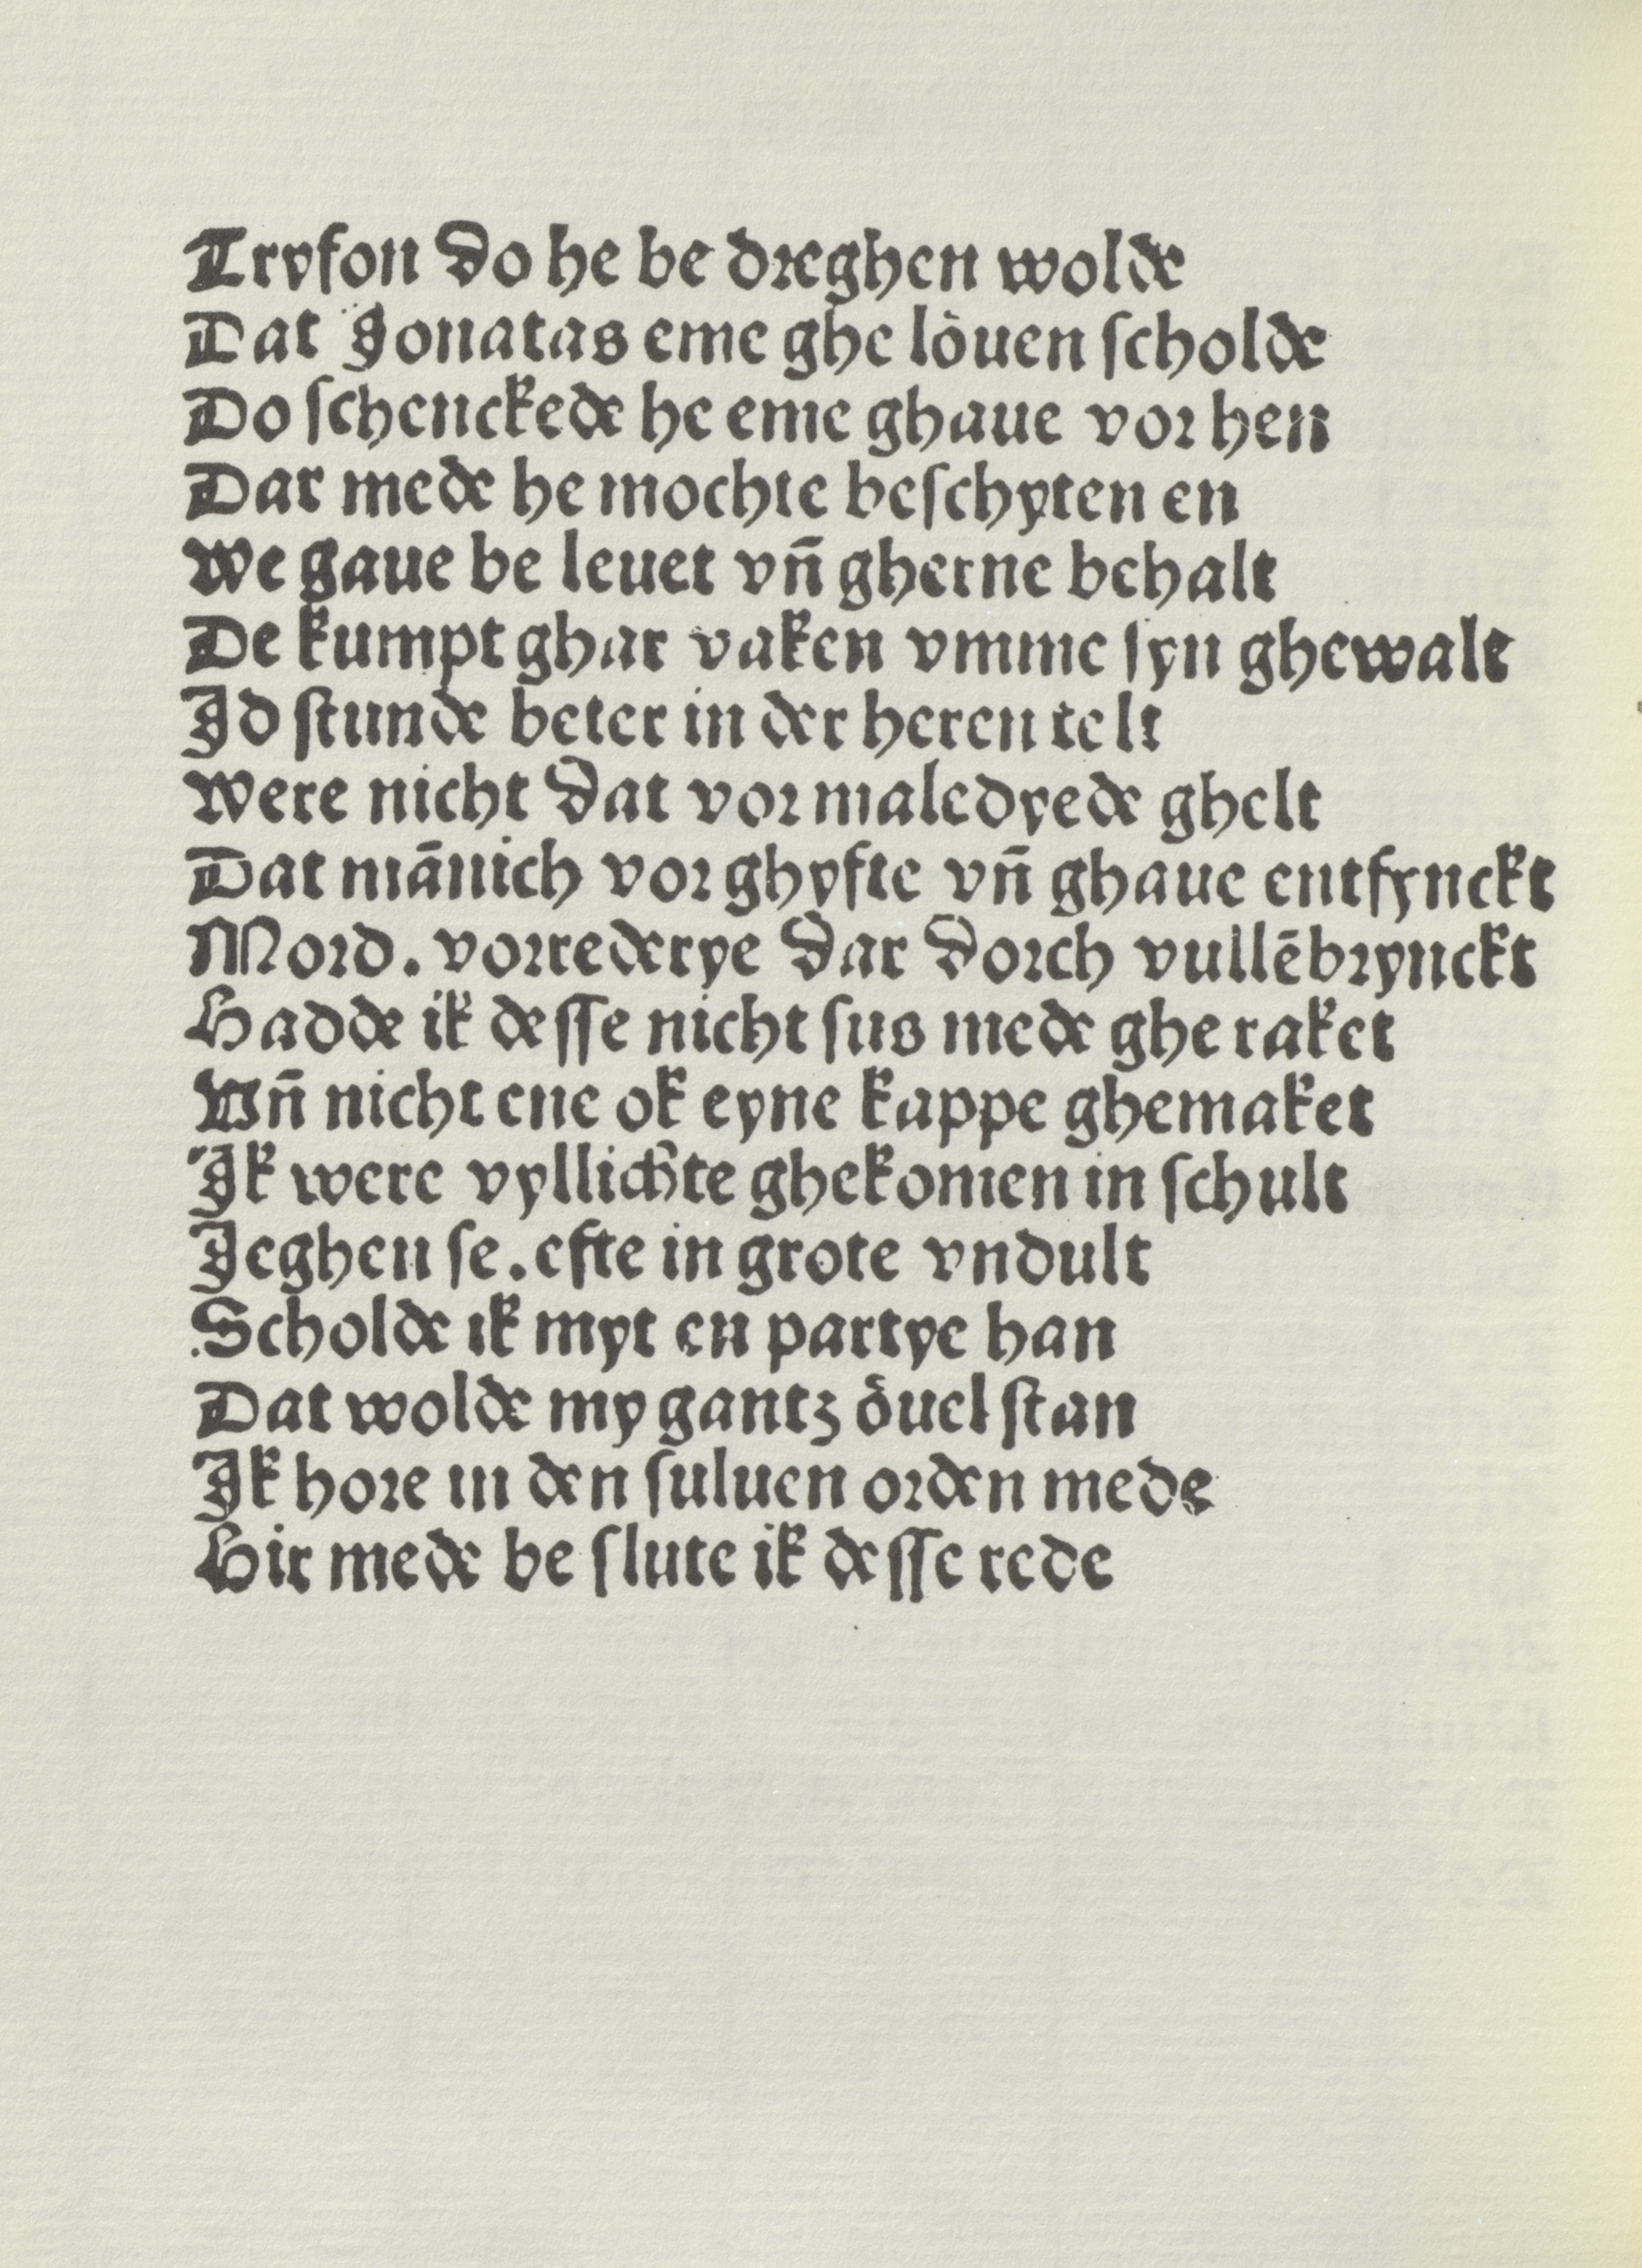 Tryfon do he be dreghen wolde
Dat Jonatas eme ghe löuen ſcholde
Do ſchenckede he eme ghaue vor hen
Dar mede he mochte beſchyten en
We gaue be leuet vn̄ gherne behalt
De kumpt ghar vaken vmme ſyn ghewalt
Jd ſtunde beter in der heren telt
Were nicht dat vor maledyede ghelt
Dat mānich vor ghyfte vn̄ ghaue entfynckt
Mord. vorrederye dar dorch vullēbrynckt
Hadde ik deſſe nicht ſus mede ghe raket
Vn̄ nicht ene ok eyne kappe ghemaket
Jk were vyllichte ghekomen in ſchult
Jeghen ſe. efte in grote vndult
Scholde ik myt en partye han
Dat wolde my gantz öuel ſtan
Jk hore in den ſuluen orden mede
Hir mede be ſlute ik deſſe rede